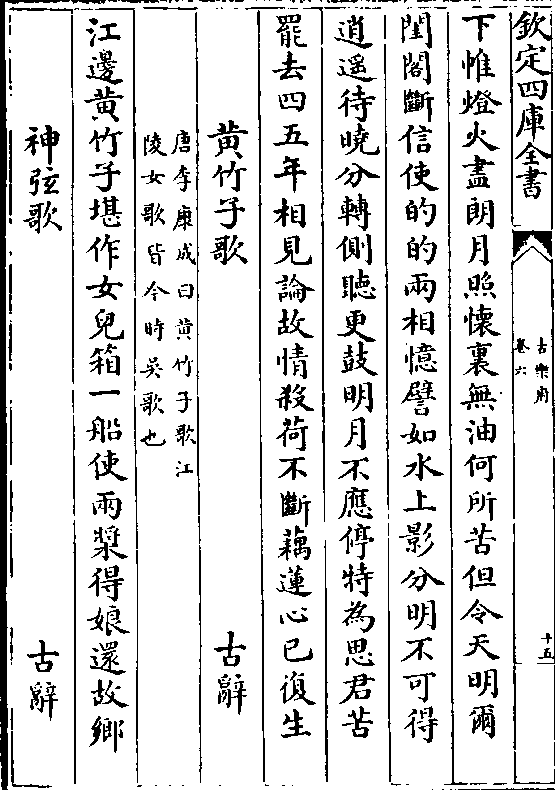 欽定四庫全書
古樂府
卷六
十五
下帷燈火盡朗月照懷裏無油何所苦但令天明爾
閨閣斷信使的的兩相憶譬如水上影分明不可得
逍遥待曉分轉側聽更鼓明月不應停特為思君苦
罷去四五年相見論故情殺荷不斷藕蓮心已復生
黄竹子歌　古辭
唐李康成曰黄竹子歌江
陵女歌皆今時吳歌也
江邊黄竹子堪作女兒箱一船使兩槳得娘還故鄉
神弦歌　古辭